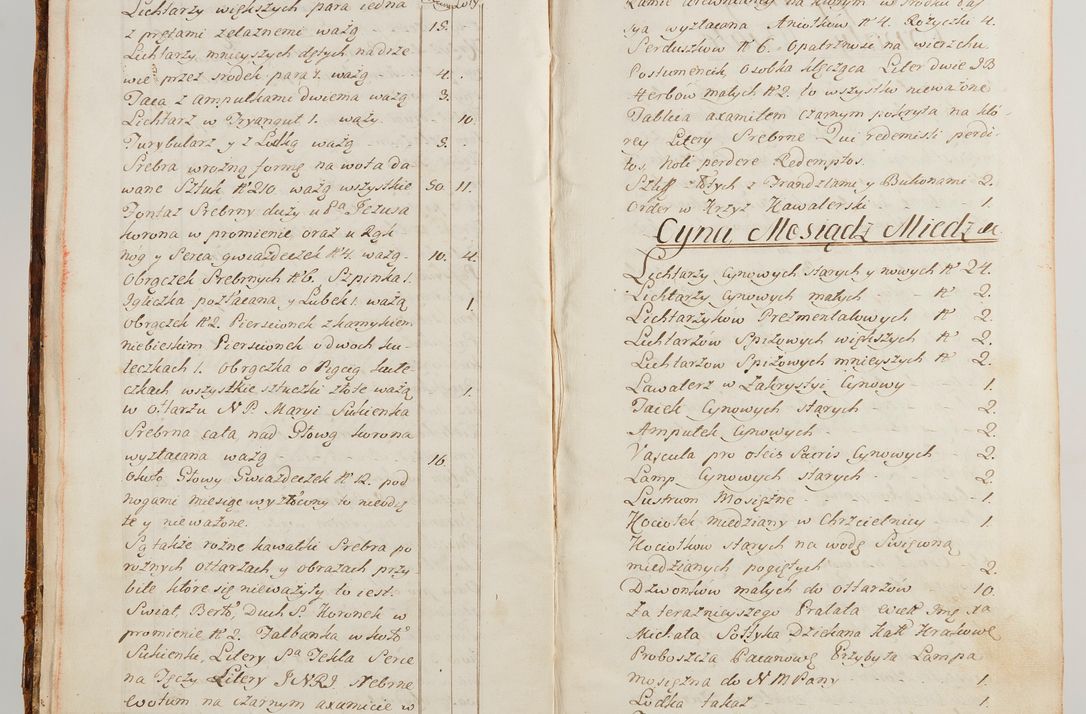 Lichtarzy większych para iedna
z prętami zelaznemi ważą - 15.
Lichtarzy mnieyszych dętych na drze
wie przez srodek para 1. ważą - 4.
Taca z ampułkami dwiema ważą 3.
Lichtarz w Tryanguł 1. waży 10.
Turybularz y z Łodką ważą - 3.
Srebra wrożną formę na wota da
wane Sztuk N° 210 ważą wszystkie 30. 11.
Fontaz Srebrny duży u Pa Jezusa
korona w promienie oraz u Rąk
nog y Serca gwiazdeczek N° 4. ważą 10. 4.
Obrączek Srebrnych N° 6. Szpinka 1.
Igliczka pozłacana y Lubek 1. ważą 1.
Obrączek N° 2. Pierscionek z kamykiem
niebieskim Pierscionek o dwoch ku
teczkach 1. Obrączka o
czkach wszystkie sztuczki złote ważą 1.
w Ołtarzu N P. Maryi Sukienka
Srebrna cała nad Głową korona
wyzłacana ważą - 16.
około Głowy Gwiazdeczek N° 12. pod
nogami miesiąc wyzłócony to nieodię
te y nieważone.
Są także rożne kawałki Srebra po
rożnych ołtarzach y obrazach przy
bite które się nieważyły to iest:
Swiat, Berło, Duch S. Koronek w
promienie N° 2. Falbanka w koło
Sukienki, Litery Sa Tekla Serce
na Tęczy Litery J N R J. srebrne
Wotum na czarnym axamicie w
Ramie drewnianey na ktorym w srodku
wyzłacana Aniołkow N° 4. Rożyczki 4.
Serduszkow N° 6. Opatrznosc na wierzchu
Postumencik, Osobka klęcząca Liter dwie J B
Herbow małych N° 2. to wszystko nieważone
Tablica axamitem czarnym pokryta na kto-
rey Litery Srebrne Qui redemisti perdi-
tos, Noli perdere Redemptos.
Szliff złotych z Frandzlami y Bulionami 2.
Order w Krzyż Kawalerski - 1.
Cyna, Mosiądz Miedz
Lichtarzy Cynowych starych y nowych N° 24.
Lichtarzy Cynowych małych - N° 2.
Lichtarzykow Prezmentalowych N° 2.
Lichtarzow Spiżowych większych N° 2.
Lichtarzow Spiżowych mnieyszych N° 2.
Lawaterz w Zakrystyi Cynowy - 1.
Tacek Cynowych starych - 2.
Ampułek Cynowych - 2.
Vascula pro oleis Sacris Cynowych - 2.
Lamp Cynowych starych - 2.
Lustrum Mosiężne - 1.
Kociołek miedziany w Chrzcielnicy - 1.
Kociołkow starych na wodę Swięconą
miedzianych pogiętych - 2.
Dzwonkow małych do ołtarzow - 10.
Za teraznieyszego Prałata Jmę Xa
Michała Sołtyka Dziekana Kat Krakowo
Proboszcza Pacanowo Przybyła Lampa
mosiężna do N M Pany - 1.
Lodka takaż - 1.